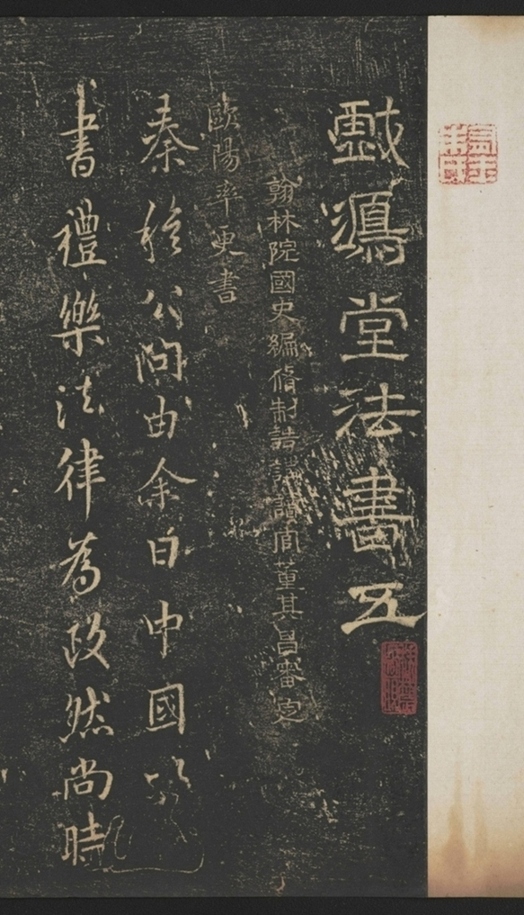 戲鴻堂法書五
翰林院國史編脩制誥講讀官董其昌審定
歐陽率更書
秦穆公問由余曰中國以詩
書禮樂法律為政然尚時